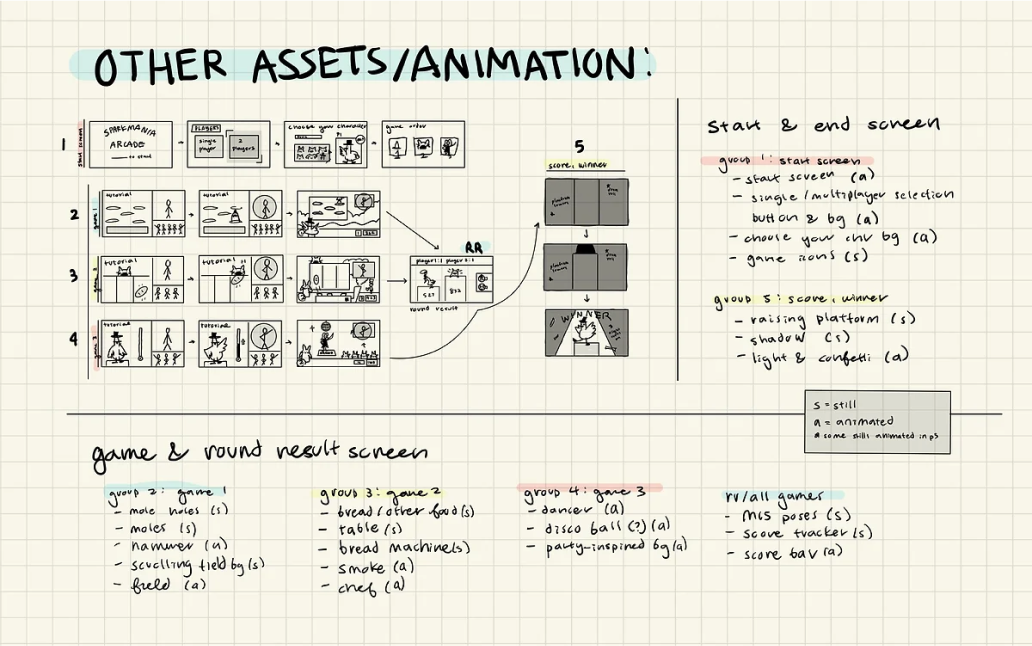 OTHER ASSETS/ANIMATION:
1
start screen
SPARKMANIA
ARCADE
to start
PLAYERS
single
player
2
players
choose your character
P1
game order
2
game 1
tutorial
tutorial
3
tutorial
tutorial
4
game 3
tutorial
tutorial
RR
player 1 : player 2 :
527
832
round result
5
score, winner
WINNER
start & end screen
group 1: start screen
- start screen (a)
- single/multiplayer selection
button & bg (a)
- choose your chr bg (a)
- game icons (s)
group 5: score, winner
- raising platform (s)
- shadow (s)
- light & confetti (a)
s = still
a = animated
* some stills animated in p5
game & round result screen
group 2: game 1
- mole holes (s)
- moles (s)
- hammer (a)
- scrolling field bg (s)
- field (a)
group 3: game 2
- bread/other food (s)
- table (s)
- bread machine (s)
- smoke (a)
- chef (a)
group 4: game 3
- dancer (a)
- disco ball (?) (a)
- party-inspired bg (a)
rr/all games
- MCs poses (s)
- score tracker (s)
- score bar (a)